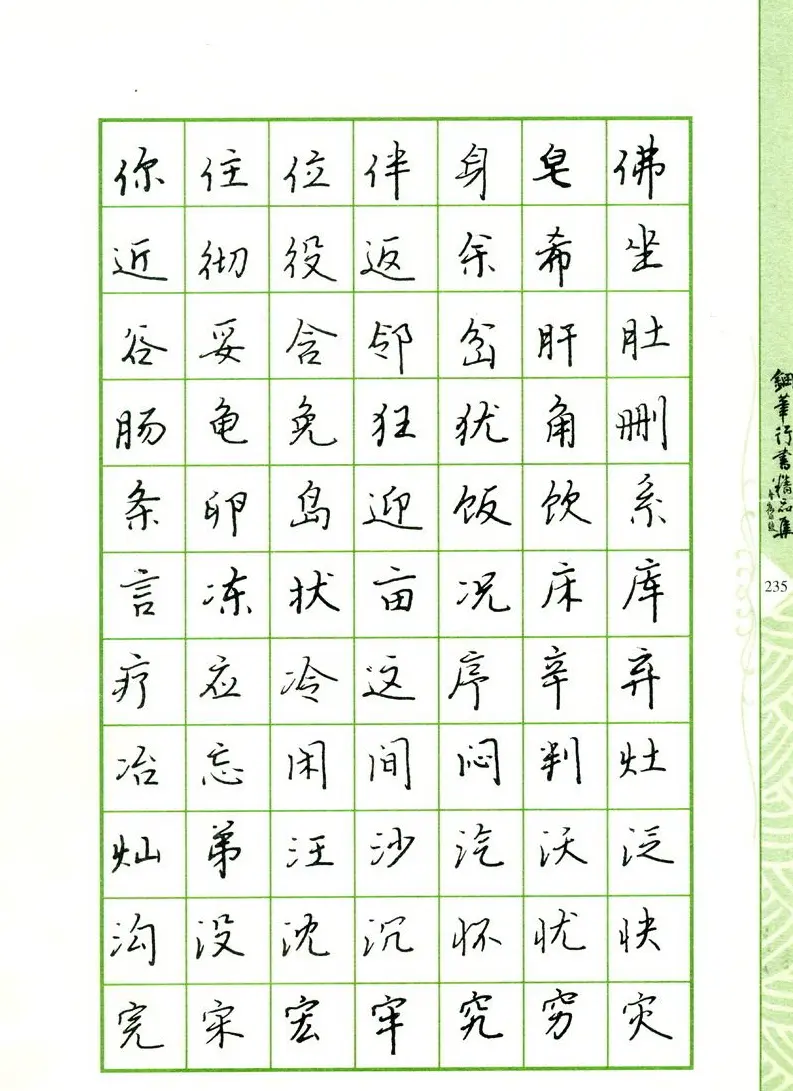 你住位伴身皂佛
近彻役返余希坐
谷妥含邻岔肝肚
肠龟免狂犹角删
条卵岛迎饭饮系
言冻状亩况床库
疗应冷这序辛弃
冶忘闲间闷判灶
灿弟汪沙汽沃泛
沟没沈沉怀忧快
完宋宏牢究穷灾
钢笔行书精品集
235